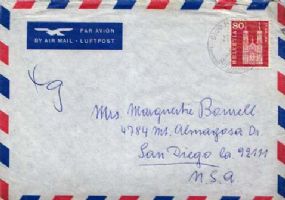 PAR AVION
BY AIR MAIL · LUFTPOST
80
HELVETIA
Mrs. Marguerite
4784 Mt. Almagosa Dr.
San Diego Ca. 92111
U.S.A